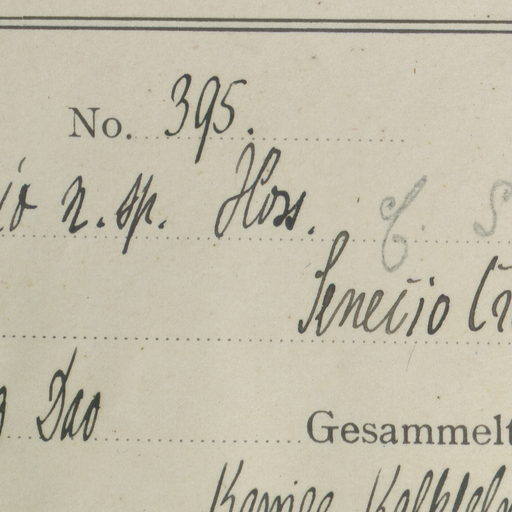 No. 395.
n. sp. Hoss. C. S
Senecio Cr
Dao Gesammelt